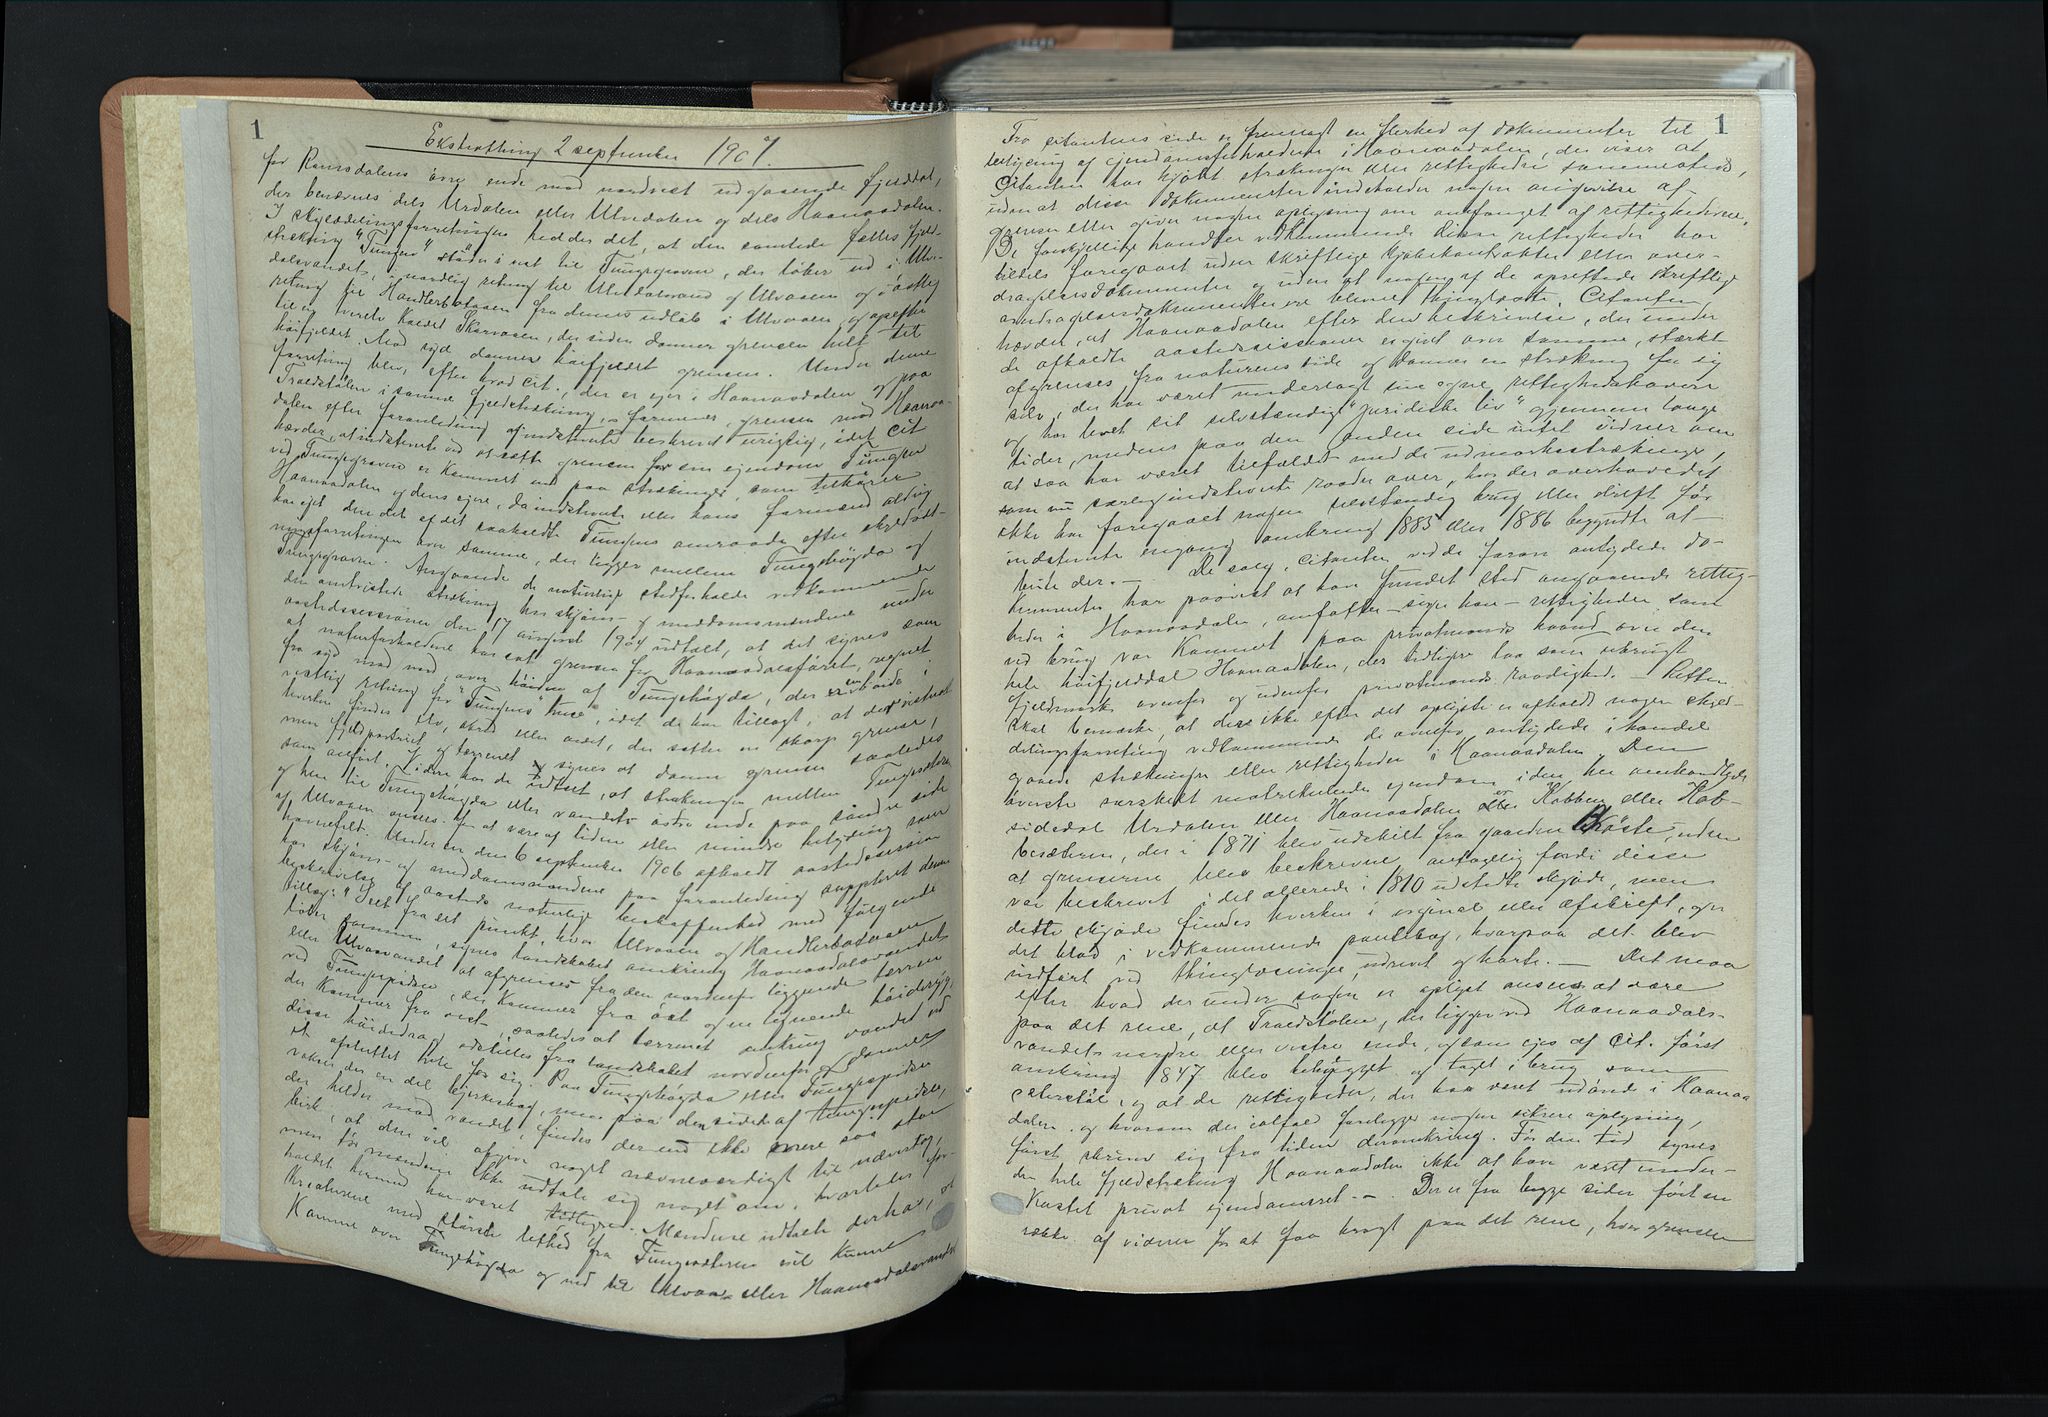 1
Ekstratthing 2 september 1907.
for Romsdalens övre ende mod nordvest udgaaende fjelddal,
der benævnes dels Urdalen eller Ulvedalen og dels Haanaadalen.
I skylddelingsforretningen hedder det, at den samlede fælles fjeld-
strækning "Tungen" stöder i vest til Tungegraven, der löber ud i Ulve-
dalsvandet, i nordlig retning til Ulvedalsvand og Ulvaaen og i östlig
retning til Handlerbotaaen fra dennes udlöb i Ulvaaen, og opefter
til en hvelv kaldet Skarvaaen, der siden danner grensen helt til
höifjeldet. Mod syd danner höifjeldet grensen. Under denne
forretning blev, efter hvad cit., der er ejer i Haanaadalen og paa
Troldstölen i samme fjeldstrækning, formener, grensen mod Haanaa-
dalen efter foranledning af indstevnte beskrevet urigtig, idet cit
hævder, at indstevnte ved at sætte grensen for sin ejendom Tungen
ved Tungegraven er kommet ind paa strækninger, som tilhörer
Haanaadalen og dens ejere, da indstevnte eller hans formænd aldrig
har ejet den del af det saakaldte Tungens omraade efter skylddel-
ningsforretningen over samme, der ligger mellem Tungehögda og
Tungegraven. Angaaende de naturlige stedforholde vedkommende
den omtvistede strækning har skjöns- og meddomsmændene under
aastedssessionen den 17 august 1904 udtalt, at det synes som
at naturforholdene har sat grensen for Haanaadalsföret, regnet
fra syd mod nord, over höiden af Tungehögda, der er en böide i
vestlig retning for "Tungens" huse, idet de har tillagt, at der vistnok
hverken findes elv, skred eller andet, der sætter en skarp grense,
men fjeldpartiet og terrenet synes at danne grensen saaledes
som anfört. Videre har de udtalt, at strækningen mellem Tungesæteren
og hen til Tungehögda eller vandets östre ende paa söndre side
af Ulvaaen ansees for at være af liden eller mindre betydning som
havnefelt. Under en den 6 september 1906 afholdt aastedssession
har skjöns- og meddomsmændene paa foranledning suppleret denne
beskrivelse af aastedets naturlige beskaffenhed med fölgende
tillæg: "Seet fra det punkt, hvor Ulvaaen og Handlerbotaaen
löber sammen, synes landskabet omkring Haanaadalsvandet
eller Ulvaavandet at afgrenses fra den nordenfor liggende terren
ved Tungespidsen, der kommer fra öst og en lignende höideryg,
der kommer fra vest, saaledes at terrenet omkring vandet ved
disse höidedrag adskilles fra landskabet nordenfor og danner
et afsluttet hele for sig. Paa Tungehögda eller Tungespidsen
vokser der en del birkeskog, men paa den side af tungespidsen,
der helder mod vandet, findes der nu ikke mere saa stor
birk, at den vil afgive noget nævneværdigt til ulævestog,
men tör mændene ikke udtale sig noget om, hvorledes for-
holdet hermed har været tidligere. Mændene udtale derhos, at
kreaturene med störste lethed fra Tungesæteren vil kunne
komme over Tungehögda og ned til Ulvaa- eller Haanaadalsvandet
1
Fra citantens side er fremlagt en flerhed af dokumenter til
belysning af ejendomsforholdene i Haanaadalen, der viser at
Citanten har kjöbt strækninger eller rettigheder sammesteds,
uden at disse dokumenter indeholder nogen angivelse af
grenser eller giver nogen oplysning om omfanget af rettighederne.
De forskjellige handler vedkommende disse rettigheder har
tildels foregaaet uden skriftlige kjöbekontrakter eller over-
dragelsesdokumenter og uden at nogen af de oprettede skriftlige
overdragelsesdokumenter ere blevne thinglæste. Citanten
hævder, at Haanaadalen efter den beskrivelse, der under
de afholdte aastedssessioner er givet over samme, stærkt
afgrenses fra naturens side og danner en strækning for sig
selv, der har været underlagt sine egne rettighedshavere
og har levet sit selvstændige "juridiske liv" gjennem lange
tider, medens paa den anden side intet vidner om
at saa har været tilfældet med de udmarksstrækninger,
som nu særlig indstevnte raader over, hvor der overhovedet
ikke har foregaaet nogen selvstændig brug eller drift för
indstevnte engang omkring 1885 eller 1886 begyndte at
beite der. — De salg, citanten ved de foran antydede do-
kumenter har paavist at have fundet sted angaaende rettig-
heder i Haanaadalen, omfatter – siger han – rettigheder som
ved brug var kommet paa privatmands haand over den
hele höifjelddal Haanaadalen, der tidligere laa som ubrugt
fjeldmark ovenfor og udenfor privatmands raadighed. — Retten
skal bemærke, at der ikke efter det oplyste er afholdt nogen skyld-
delingsforretning vedkommende de ovenfor antydede i handel
gaaende strækninger eller rettigheder i Haanaadalen. Den
överste særskilt matrikulerede ejendom i den her omhandlede
sidedal Urdalen eller Haanaadalen er Kabben eller Kab-
besæteren, der i 1871 blev udskilt fra gaarden Böste, uden
at grenserne blev beskrevne, antagelig fordi disse
var beskrevet i det allerede i 1810 udstedte skjöde, men
dette skjöde findes hverken i original eller afskrift, og er
det blad i vedkommende pantebog, hvorpaa det blev
indfört ved thinglæsningen, udrevet og borte. — Det maa
efter hvad der under sagen er oplyst ansees at være
paa det rene, at Troldstölen, der ligger ved Haanaadals-
vandets nordre eller vestre ende, og som ejes af cit. först
omkring 1847 blev bebygget og taget i brug som
sæterstöl, og at de rettigheder, der har været udövede i Haanaa
dalen, og hvorom der ialfald foreligger nogen sikrere oplysning,
först skriver sig fra tiden deromkring. För den tid synes
den hele fjeldstrækning Haanaadalen ikke at have været under-
kastet privat ejendomsret. — . Der er fra begge sider fört en
række af vidner for at faa bragt paa det rene, hvor grensen